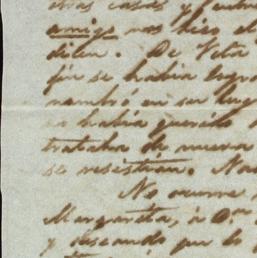 otras casas y
amigo nos hizo el
dicen. De Veta
que se habia logra
nombró en su lug
se habia querido
trataba de nueva
se resistian. No
No ocurre
Margarita, à Dn
y deseando que lo